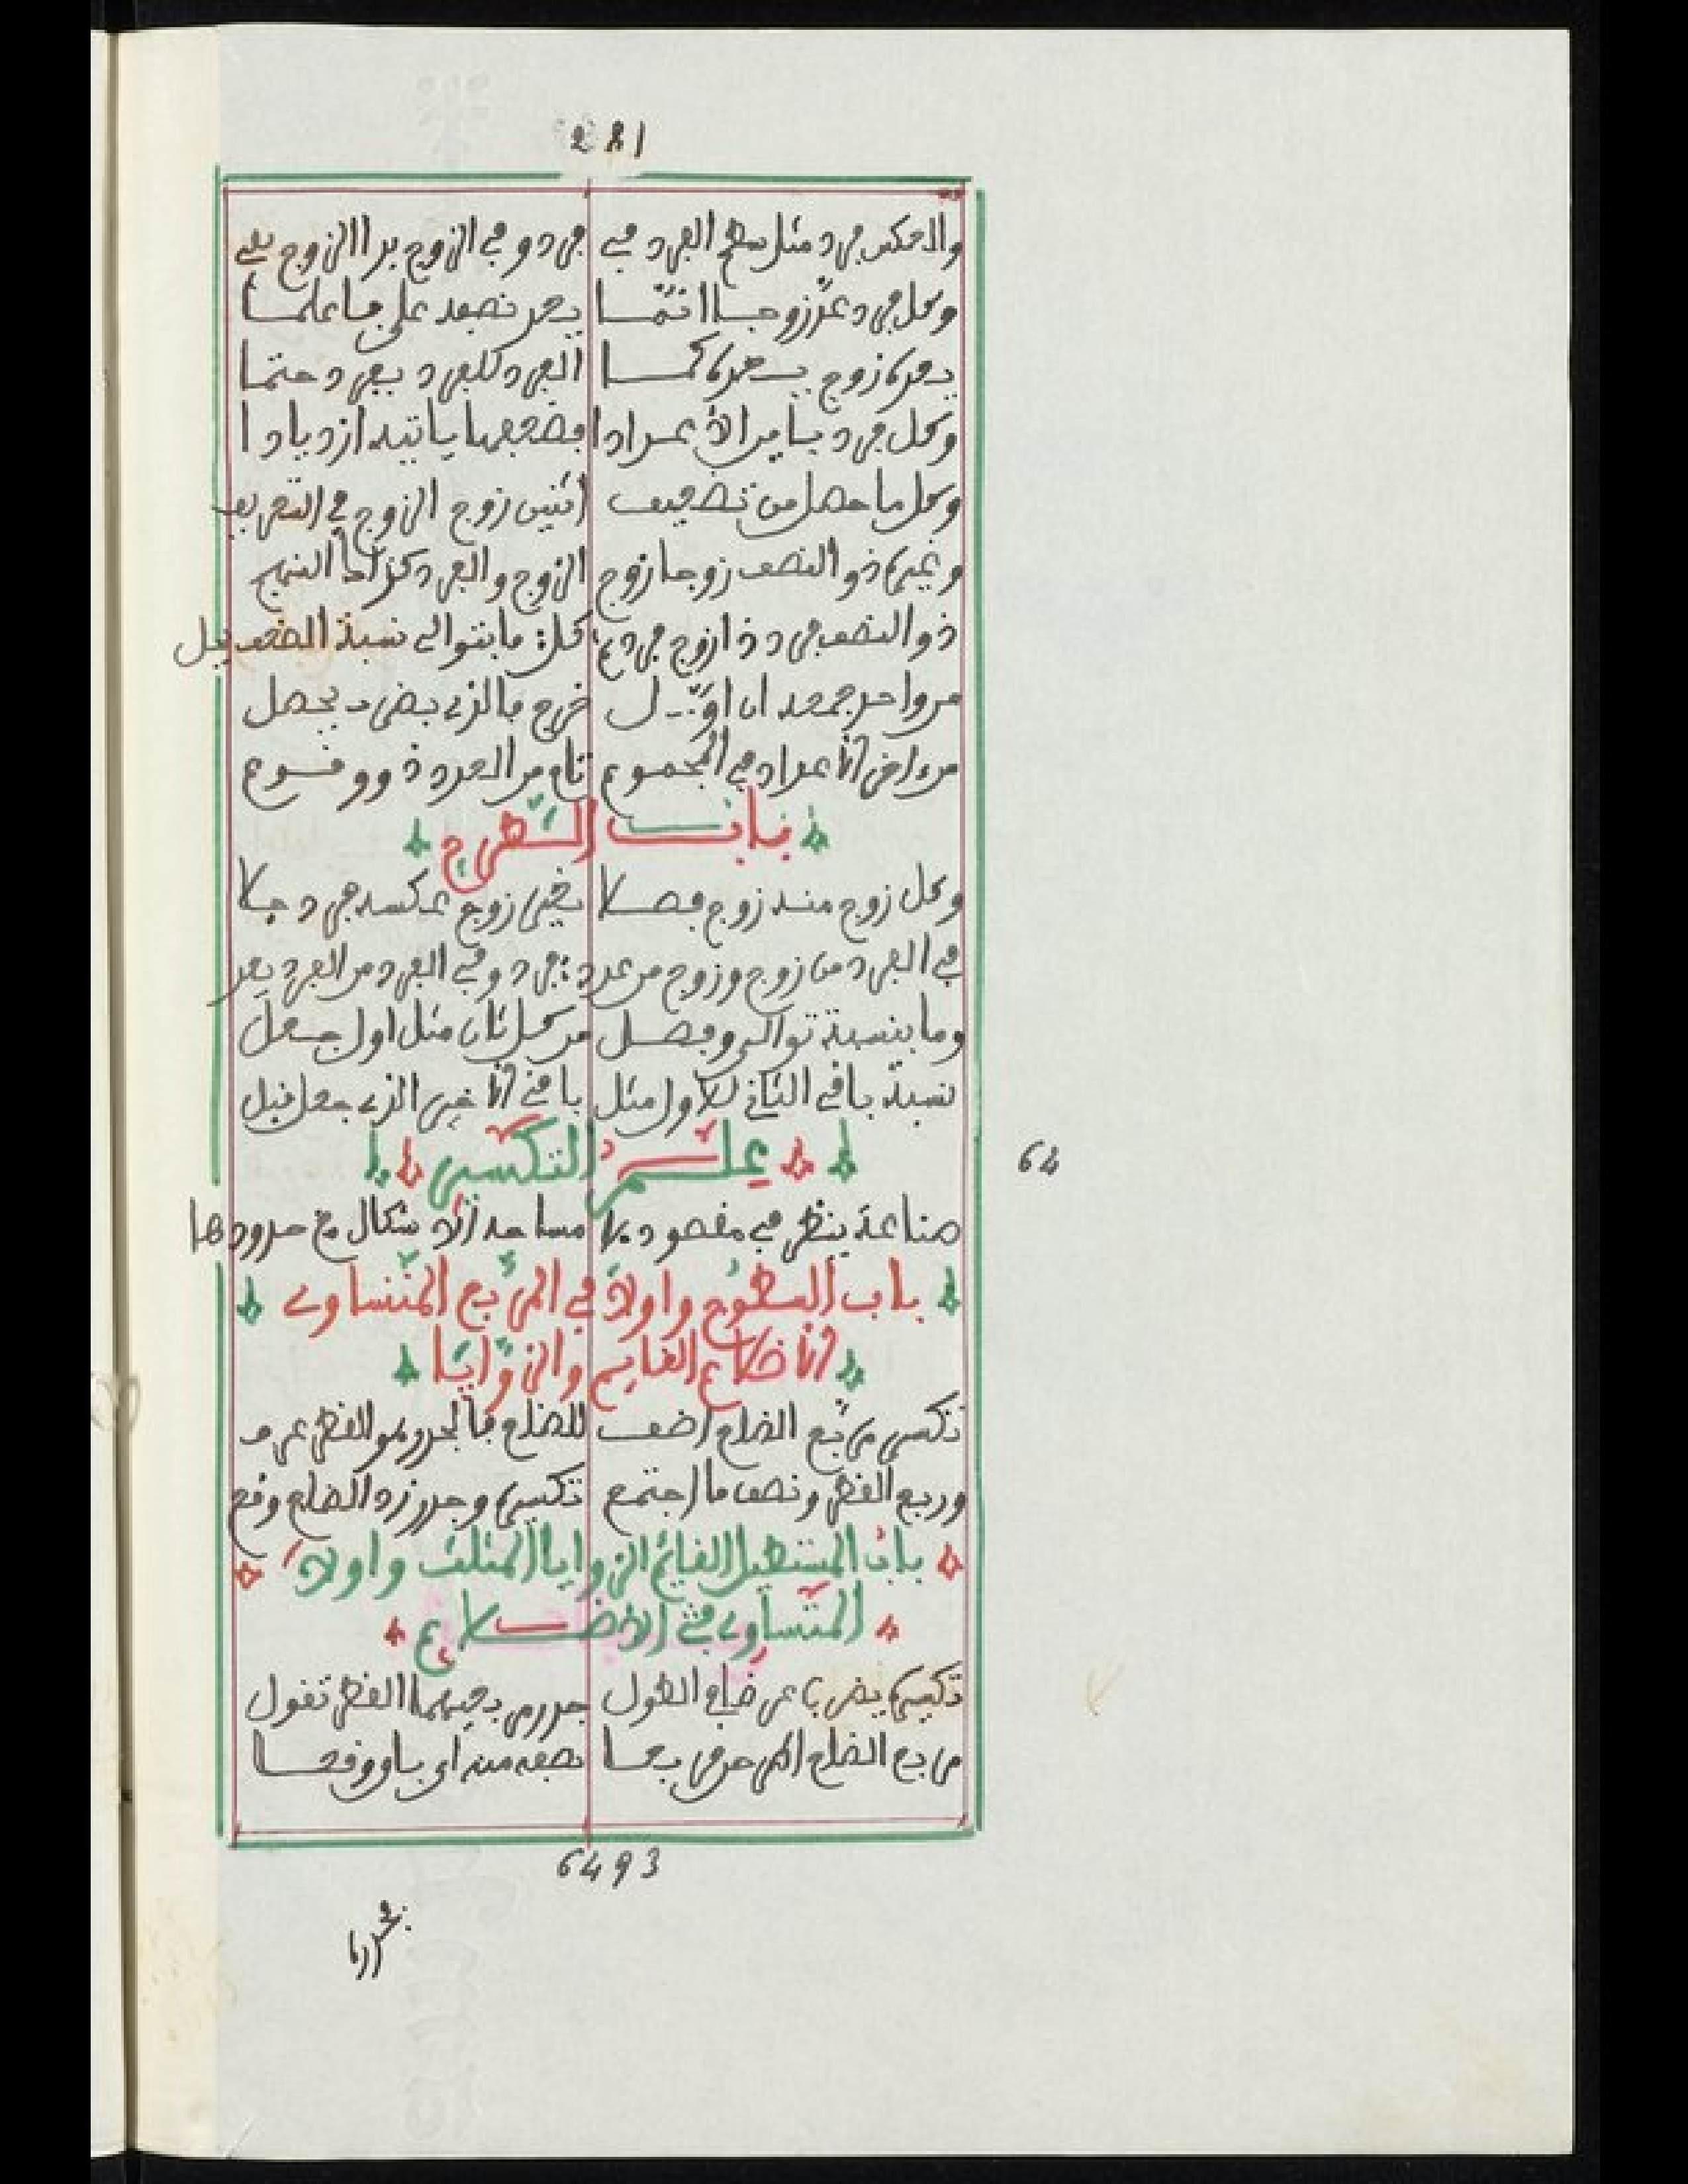 281
والعكس فرد مثل سطح الفرد في فرد وفي الزوج بدا الزوج يفي
وكل فرد عد زوجا انتما بعد نصفه على ما علما
بعده زوج بعده كما الفرد للفرد بفرد حتما
وكل فرد باين الأعدادا فضعفها ياتيه ازديادا
وكل ما حصل من تضعيف اثنين زوج الزوج في التعريف
وغيره ذو النصف زوجا زوج الزوج والفرد كذا النهج
ذو النصف فرد ذا زوج فرد كل ما بتوالي نسبة الضعف
من واحد جمعه اول خرج فالذي بضرب يحصل
الأعداد في المجموع تام من العدد ذو وقوع
باب الطرح
وكل زوج منه زوج فصلا يبقى زوج عكسه فرد جلا
في الفرد من زوج وزوج من عدد فرد وفي الفرد من الفرد يعد
وما بنسبة توالى وفصل من كل ثان مثل اول جعل
نسبة باقي الثاني للاول مثل باقي الأخير الذي جعل قبل
علم التكسير
64
صناعة ينظر في مقصودها مساحة الأشكال مع حدودها
باب السطوح واولا في المربع المتساوي
الأضلاع القايم والزوايا
تكسير مربع الضلع اضف للضلع فالجدر هو القطر عرف
وربع القطر ونصف ما اجتمع تكسيره وجدر زد الضلع وقع
باب المستطيل القايم الزوايا المثلث واولا
المتساوي في الأضلاع
تكسيره بضرب عرض في الطول جدر مربعيهما القطر تقول
مربع الضلع نصفه منه
6493